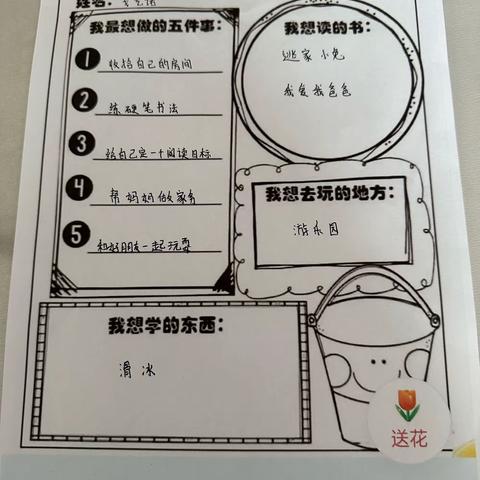 姓名:
我最想做的五件事:
1 收拾自己的房间
2 练硬笔书法
3 给自己定一个阅读目标
4 帮妈妈做家务
5 和好朋友一起玩耍
我想读的书:
逃家小兔
我爱我爸爸
我想去玩的地方:
游乐园
我想学的东西:
滑冰
送花